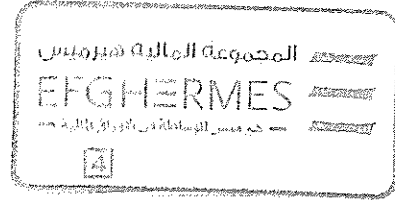 المجموعة المالية هيرميس
EFGHERMES
هيرميس للوساطة فى الأوراق المالية
4